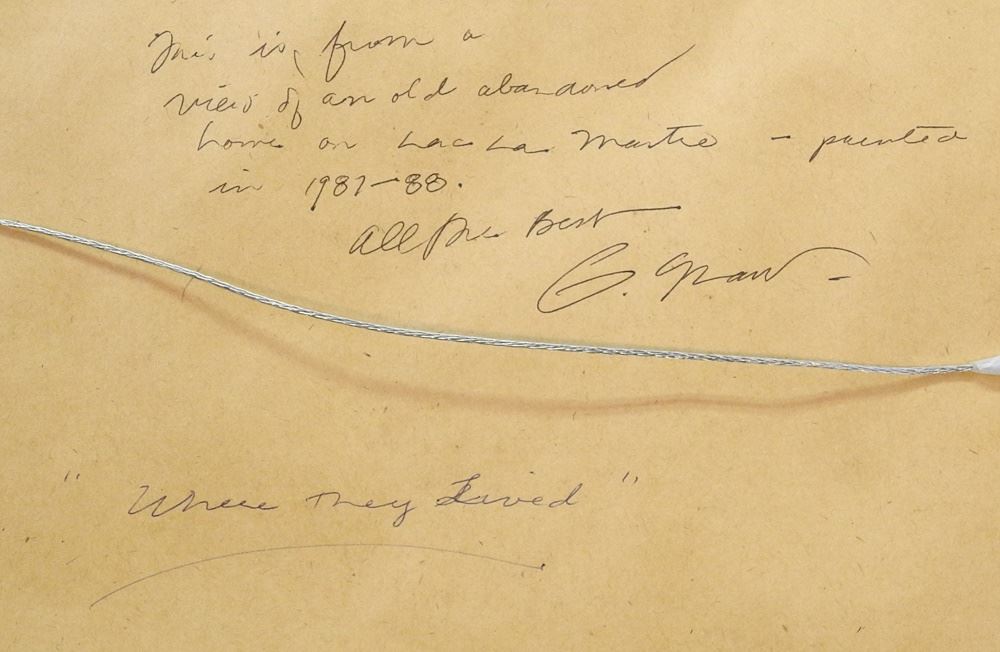 This is from a
view of an old abandoned
home on Lac La Martre - painted
in 1987-88.
All the Best
G.
"Where They Lived"